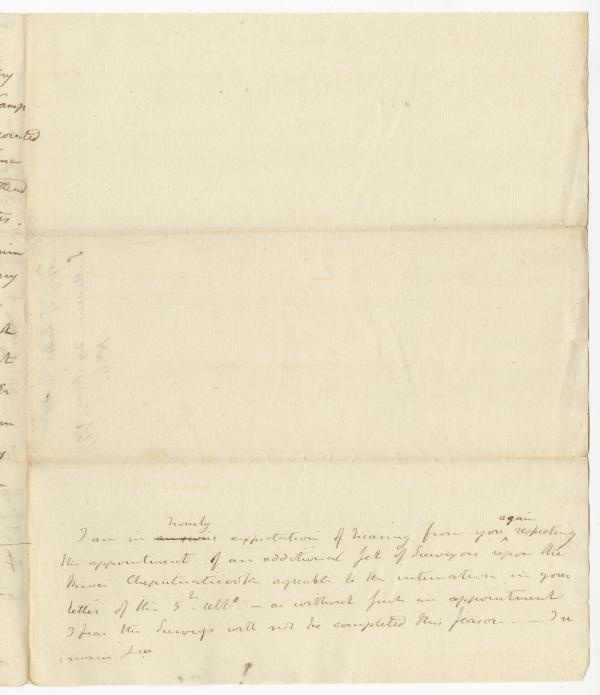 ry
camp
ocented
ttend
ts.
nim
ny
ot
t
Er
in
y
hourly again
I am in anxious expectation of hearing from you respecting
the appointment of an additional Set of Surveyors upon the
River Cheputnaticook agreable to the intimation in your
letter of the 5th. ulto. — as without such an appointment
I fear the Surveys will not be completed this Season. — I re
main Sir